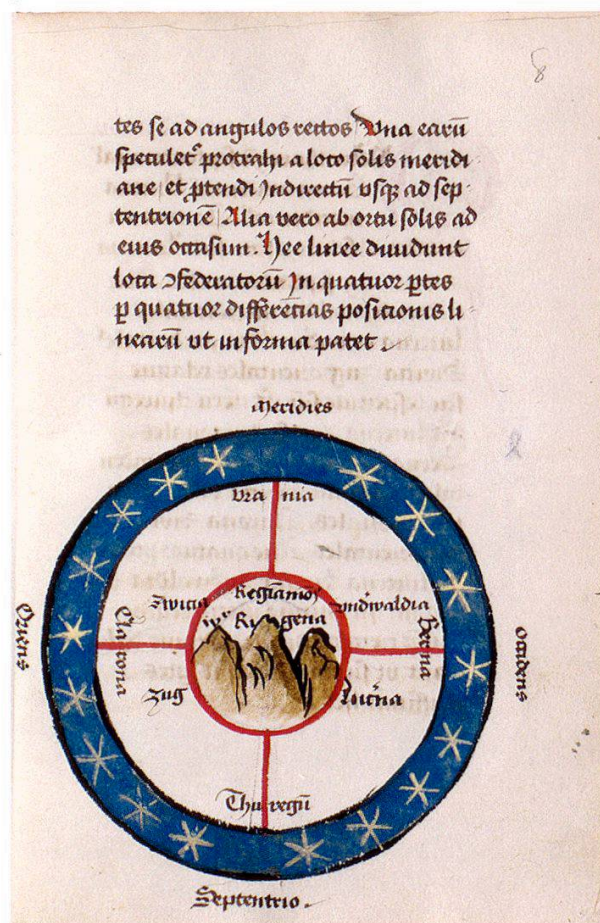 8
tes se ad angulos rectos Una earū
speculet᷑ protrahi a loco solis meridi
ane et ꝓtendi Indirectū vsqꝫ ad sep-
tentrionē Alia vero ab ortu solis ad
eius occasum. Hee linee diuidunt
loca ꝯfederatorū In quatuor ꝑtes
ꝑ quatuor differētias posicionis li-
nearū vt in forma patet .
Meridies
Vra nia
Switia
Regīa mōs
Vnd'waldia
Ri gena
Oriens
Clarona
Berna
Occidens
Zug
Luc'na
Thu regū
Septentrio .